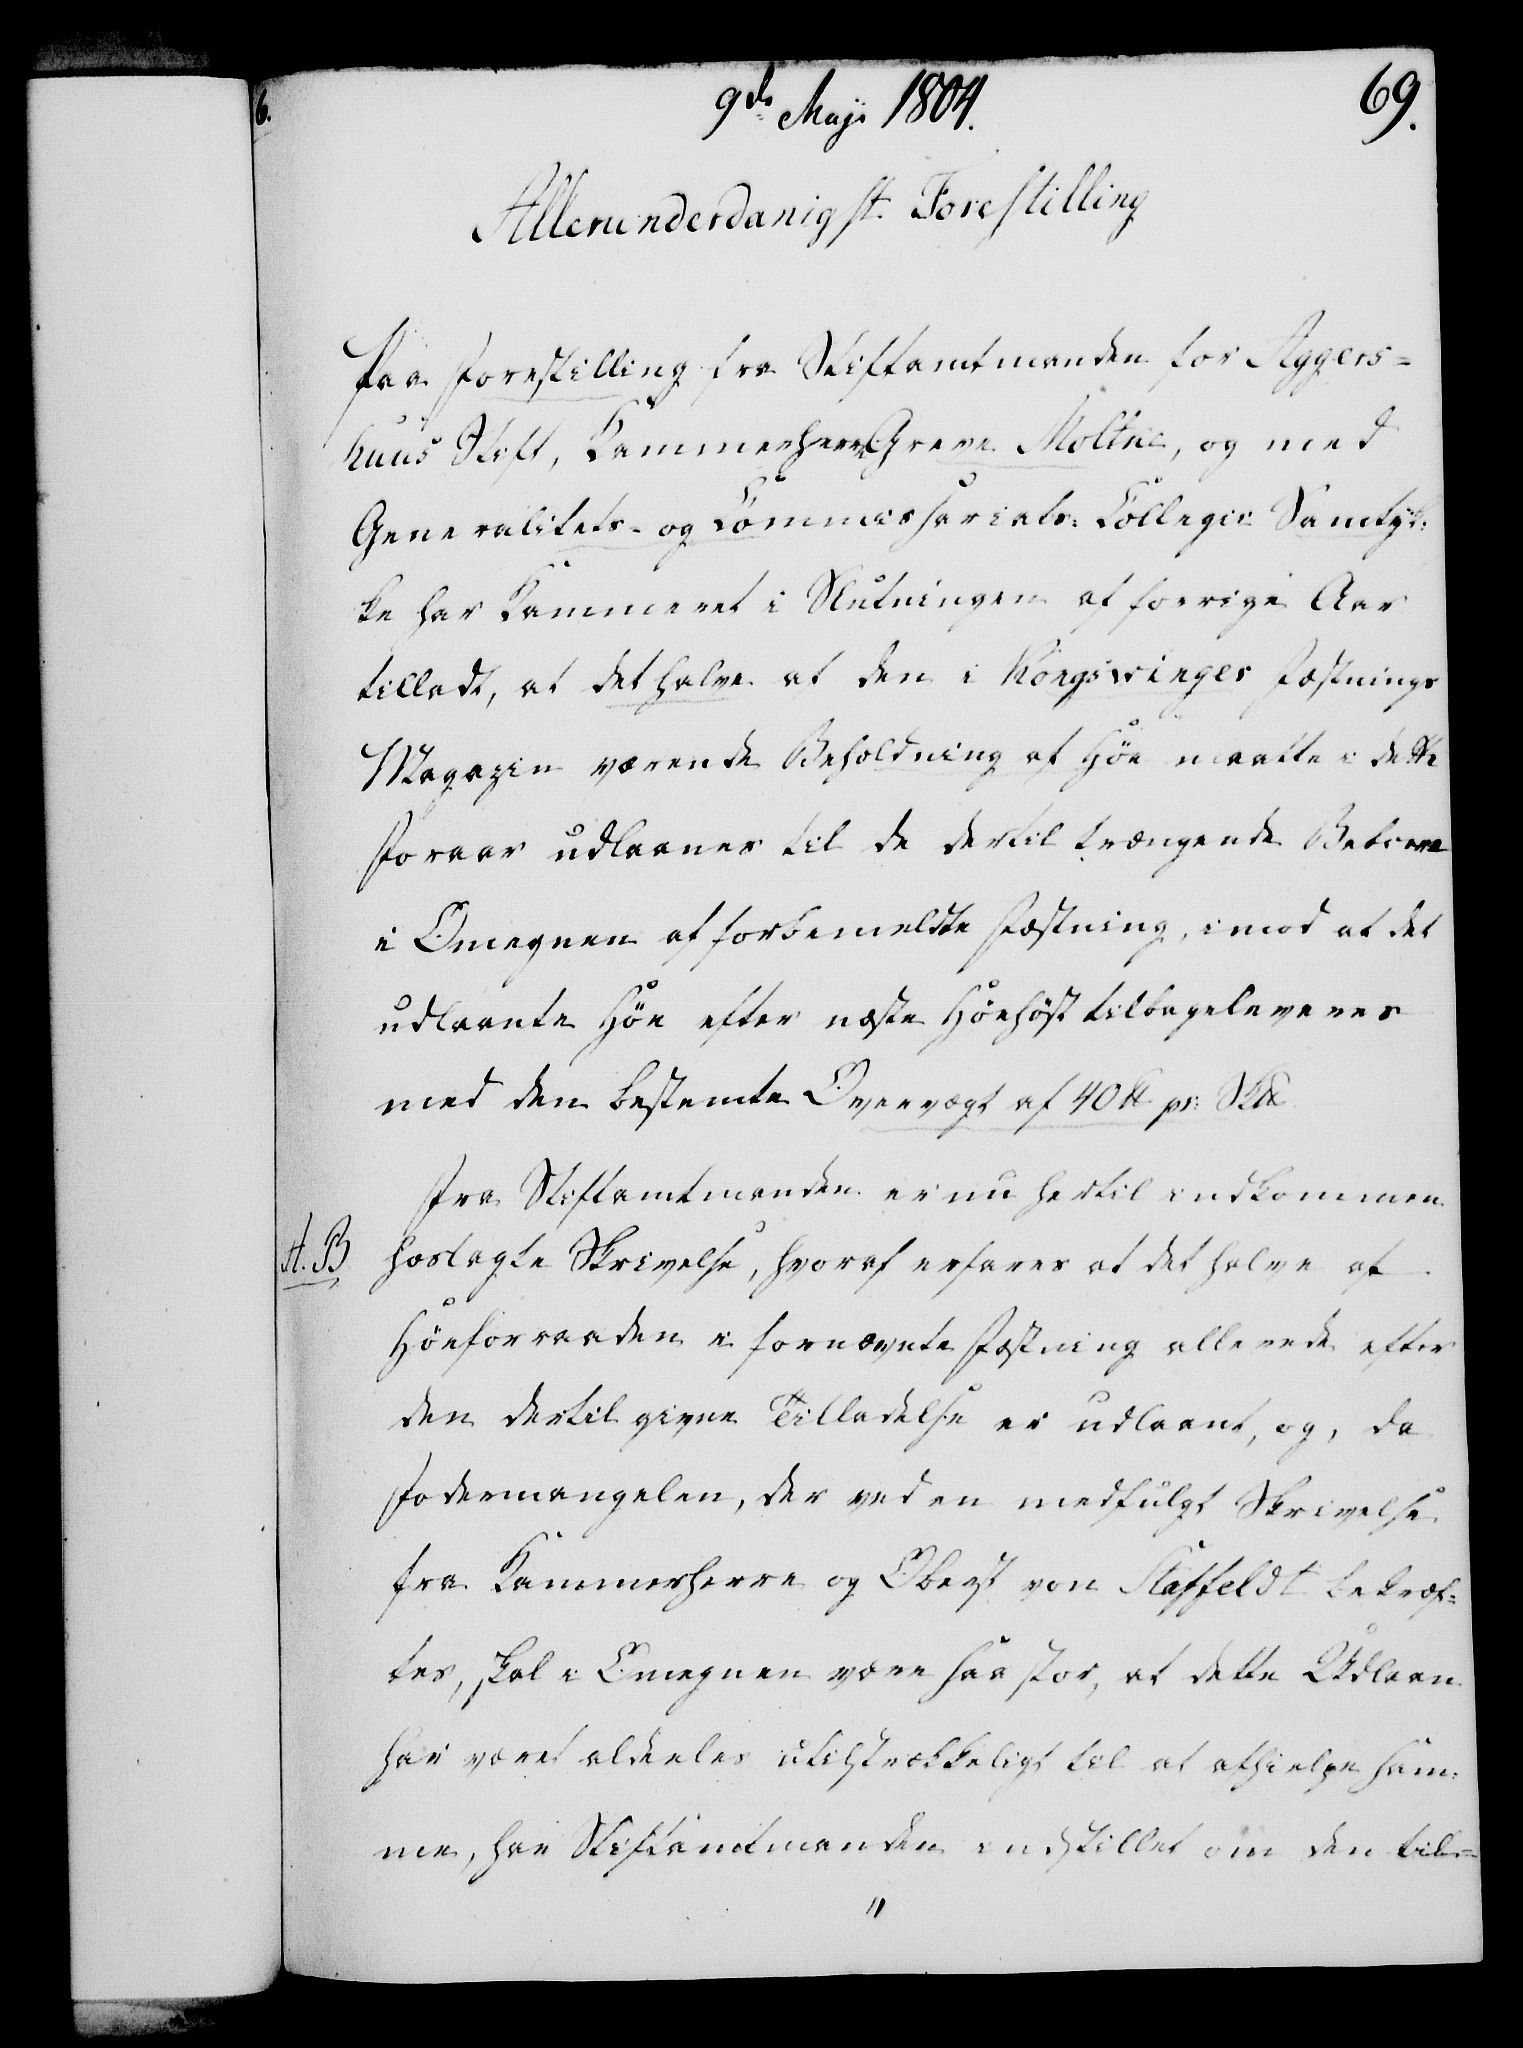 6.
9de Maji 1804.
69.
Allerunderdanigst Forestilling
Paa Forestilling fra Stiftamtmanden for Aggers=
huus Stift, Kammerherr Greve Moltke, og med
Generalitets- og Commissariats: Collegii Samtyk:
ke har Kammeret i Slutningen af forrige Aar
tilladt, at det halve af den i Kongswinger Fæstnings
Magazin værende Beholdning af Höe maatte i dette
Foraar udlaanes til de dertil trængende Beboere
i Omegnen af forbemeldte Fæstning, imod at det
udlaante Höe efter næste Höehöst tilbageleveres
med den bestemte Overvægt af 40 ℔ pr: Sk℔
Fra Stiftamtmanden er nu hertil indkommen
A. B
hoslagte Skrivelse, hvoraf erfares at det halve af
Höeforraaden i fornævnte Fæstning allerede efter
den dertil givne Tilladelse er udlaant, og, da
Fodermangelen, der ved en medfulgt Skrivelse
fra Kammerherre og Oberst von Staffeldt bekræf=
tes, skal i Omegnen være saa stor, at dette Udlaan
har været aldeeles utilstrækkeligt til at afhielpe sam:
me, har Stiftamtmanden indstillet om den til=
"